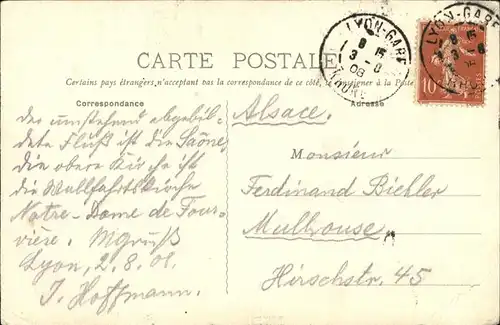 LYON-GARE
8 E
3 - 8
08
RHONE
LYON-GARE
8 E
3 - 8
10
CARTE POSTALE
Certains pays étrangers n'acceptant pas la correspondance de ce côté, se renseigner à la Poste
Correspondance
Adresse
Alsace.
der umstehend abgebil-
dete Fluß ist die Saône,
die obere Kirche ist
die Wallfahrtskirche
Notre-Dame de Four-
vière. Mgruß
Lyon, 2.8.08.
J. Hoffmann.
Monsieur
Ferdinand Biehler
Mulhouse.
Hirschstr. 45